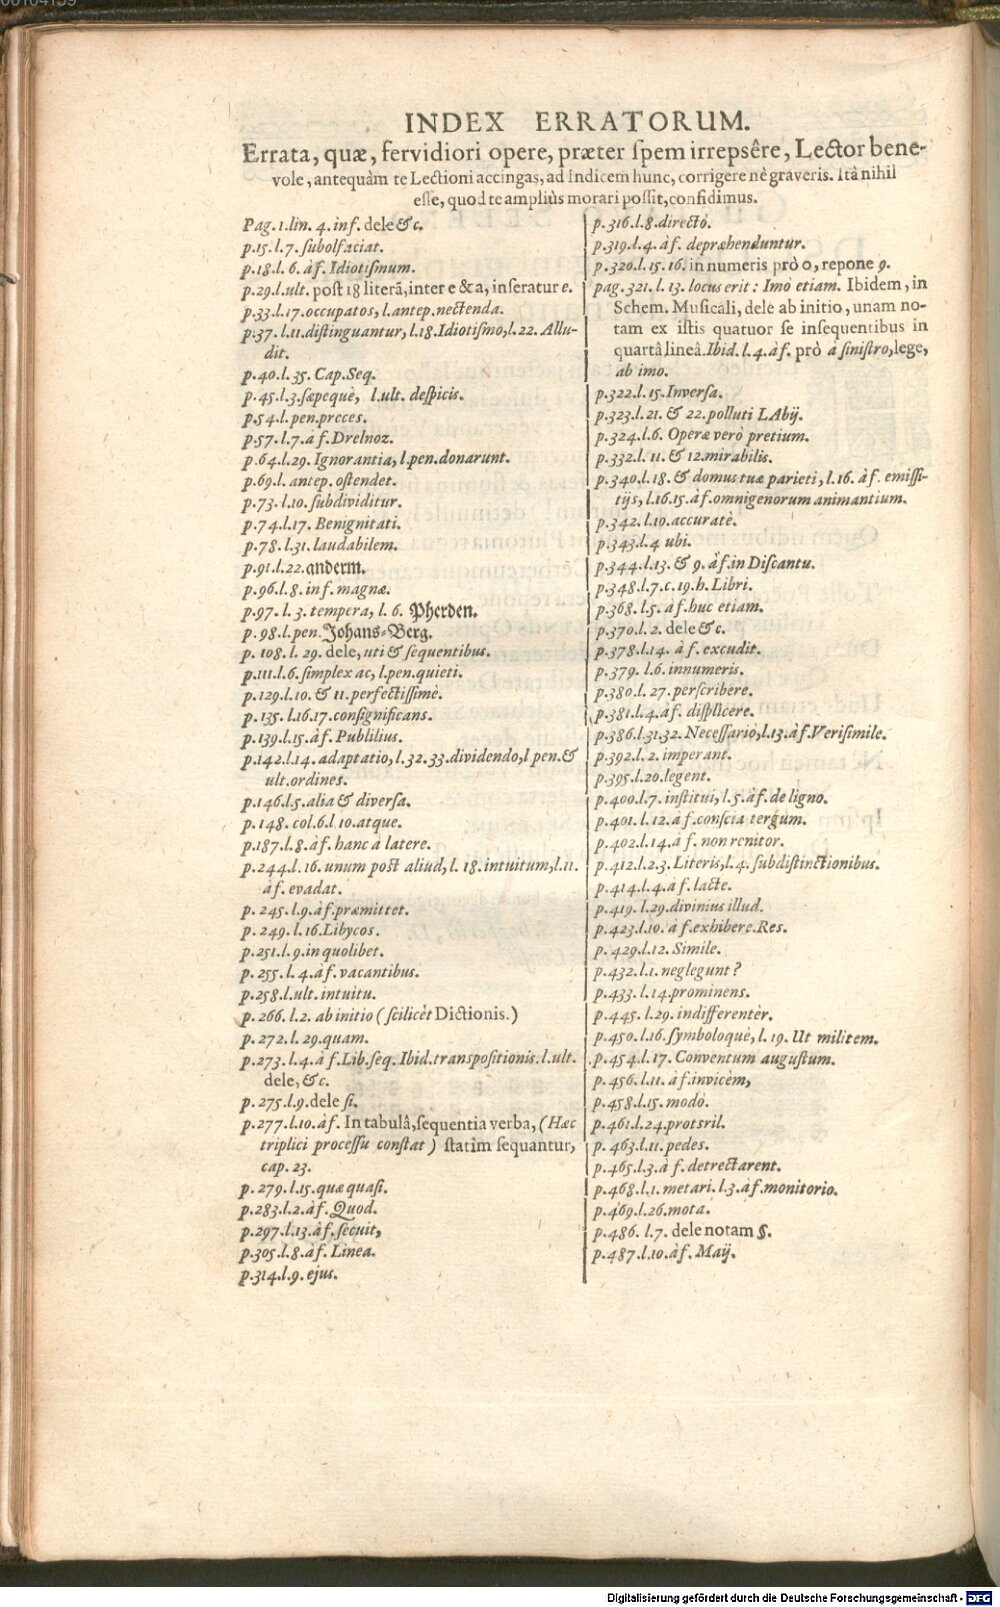 INDEX ERRATORUM.
Errata, quæ, fervidiori opere, præter ſpem irrepsêre, Lector bene-
vole, antequàm te Lectioni accingas, ad Indicem hunc, corrigere nè graveris. Ità nihil
eſſe, quod te ampliùs morari poſſit, confidimus.
Pag. 1. lin. 4. inf. dele &c.
p.15.l.7. ſubolfaciat.
p.18.l.6. àf. Idiotiſmum.
p.29.l.ult. poſt 18 literā, inter e & a, inſeratur e.
p.33.l.17. occupatos, l.antep. nectenda.
p.37.l.11. diſtinguantur, l.18. Idiotiſmo, l. 22. Allu-
dit.
p.40.l.35. Cap. Seq.
p.45.l.3. ſæpequè, l.ult. deſpicis.
p.54.l.pen. preces.
p.57.l.7. à f. Drelnoz.
p.64.l.29. Ignorantia, l.pen. donarunt.
p.69.l. antep. oſtendet.
p.73.l.10. ſubdividitur.
p.74.l.17. Benignitati.
p.78.l.31. laudabilem.
p.91.l.22. anderm.
p.96.l.8. inf. magnæ.
p.97. l. 3. tempora, l. 6. Pherden.
p. 98.l.pen. Johans-Berg.
p. 108. l. 29. dele, uti & ſequentibus.
p.111.l.6. ſimplex ac, l.pen. quieti.
p.129.l.10. & 11. perfectiſſimè.
p.135. l.16.17. conſignificans.
p.139.l.15. àf. Publilius.
p.142.l.14. adaptatio, l. 32. 33. dividendo, l pen. &
ult. ordines.
p.146.l.5. alia & diverſa.
p. 148. col.6.l 10. atque.
p.187.l.8. àf. hanc à latere.
p.244.l.16. unum poſt aliud, l. 18. intuitum, l.11.
àf. evadat.
p. 245.l.9. àf. præmittet.
p. 249. l.16. Libycos.
p.251.l.9. in quolibet.
p. 255. l. 4. àf. vacantibus.
p.258.l.ult. intuitu.
p. 266.l.2. ab initio (ſcilicèt Dictionis.)
p. 272.l. 29. quam.
p.273.l.4. à f. Lib. ſeq. Ibid. transpoſitionis. l.ult.
dele, &c.
p. 275.l.9. dele ſi.
p.277.l.10. àf. In tabulâ, ſequentia verba, (Hæc
triplici proceſſu conſtat) ſtatìm ſequantur,
cap. 23.
p. 279.l.15. quæ quaſi.
p.283.l.2. àf. Quod.
p.297.l.13. àf. ſecuit,
p.305.l.8. àf. Linea.
p.314.l.9. ejus.
p.316.l.8. directò.
p.319.l.4. àf. depræhenduntur.
p.320.l.15. 16. in numeris prò 0, repone 9.
pag. 321. l. 13. locus erit: Imò etiam. Ibidem, in
Schem. Muſicali, dele ab initio, unam no-
tam ex iſtis quatuor ſe inſequentibus in
quartâ lineâ. Ibid. l.4. àf. prò à ſiniſtro, lege,
ab imo.
p.322.l.15. Inverſa.
p.323.l.21. & 22. polluti LAbij.
p.324.l.6. Operæ verò pretium.
p.332.l. 11. & 12. mirabilis.
p.340.l.18. & domus tuæ parieti, l.16. àf. emiſſi-
tijs, l.16.15. àf. omnigenorum animantium.
p.342.l.19. accuratè.
p.343.l.4 ubi.
p.344.l.13. & 9. àf. in Diſcantu.
p.348.l.7.c.19.h. Libri.
p.368.l.5. àf. huc etiam.
p.370.l.2. dele &c.
p.378.l.14. à f. excudit.
p.379. l.6. innumeris.
p.380.l. 27. perſcribere.
p.381.l.4. àf. diſplicere.
p.386.l.31.32. Neceſſariò, l.13. àf. Veriſimile.
p.392.l. 2. imperant.
p.395.l.20. legent.
p.400.l.7. inſtitui, l.5. àf. de ligno.
p.401. l.12. à f. conſcia tergum.
p.402.l.14. à f. non renitor.
p.412.l.2.3. Literis, l.4. ſubdiſtinctionibus.
p.414.l.4. à f. lacte.
p.419. l.29. divinius illud.
p.423.l.10. à f. exhibere. Res.
p. 429.l.12. Simile.
p.432.l.1. neglegunt?
p.433. l.14. prominens.
p.445. l.29. indifferentèr.
p.450.l.16. ſymboloquè, l. 19. Ut militem.
p.454.l.17. Conventum auguſtum.
p.456.l.11. à f. invicèm,
p.458.l.15. modò.
p.461.l.24. protsril.
p. 463.l.11. pedes.
p.465.l.3. à f. detrectarent.
p.468.l.1. metari. l.3. àf. monitorio.
p.469.l.26. mota.
p.486. l.7. dele notam §.
p.487.l.10. àf. Maij.
Digitalisierung gefördert durch die Deutsche Forschungsgemeinschaft - DFG